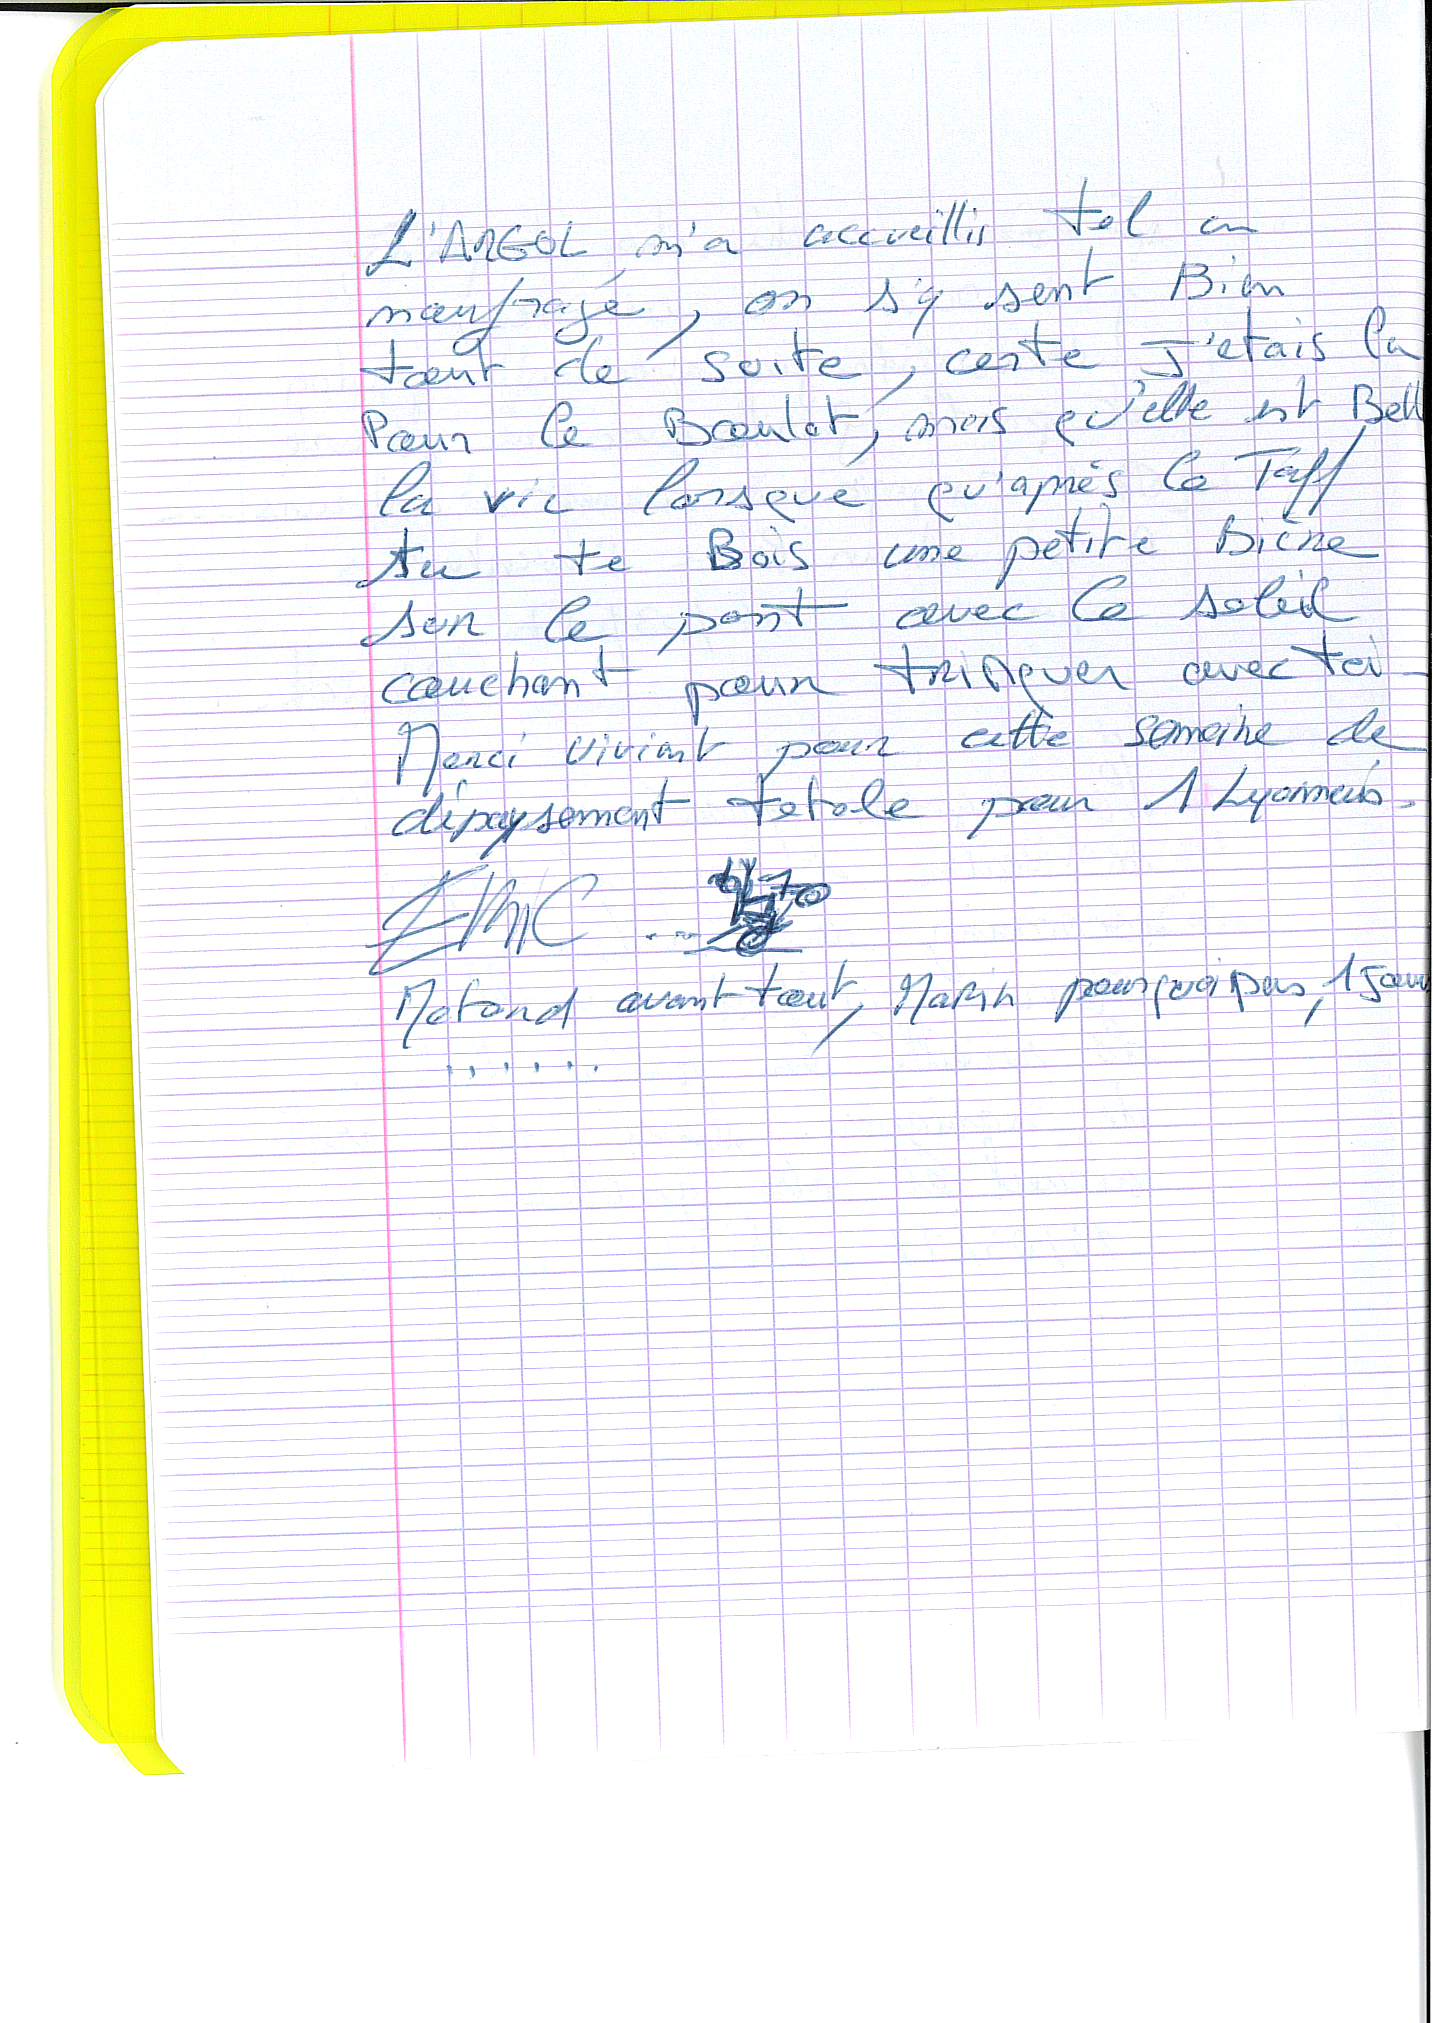 L'ARGOL m'a accueillis tel un
naufragé, on s'y sent Bien
tout de suite, certe J'etais la
Pour le Boulot, mais qu'elle est Bell
la vie lorsque qu'après le Taff
tu te Bois une petite Bière
sur le pont avec le soleil
couchant pour trinquer avec toi
Merci Vivint pour cette semaine de
dépaysement totale pour 1 Lyonnais.
ERIC ...
Motard avant tout, Marin pourquoi pas, 1 Jour
......